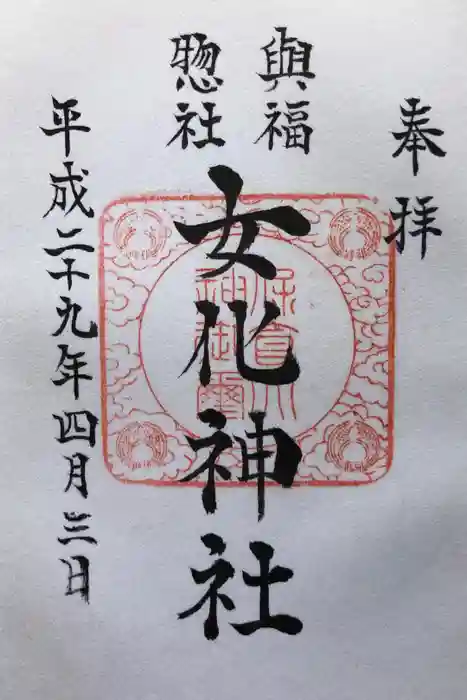 奉拝
與福
惣社
女化神社
平成二十九年四月三日